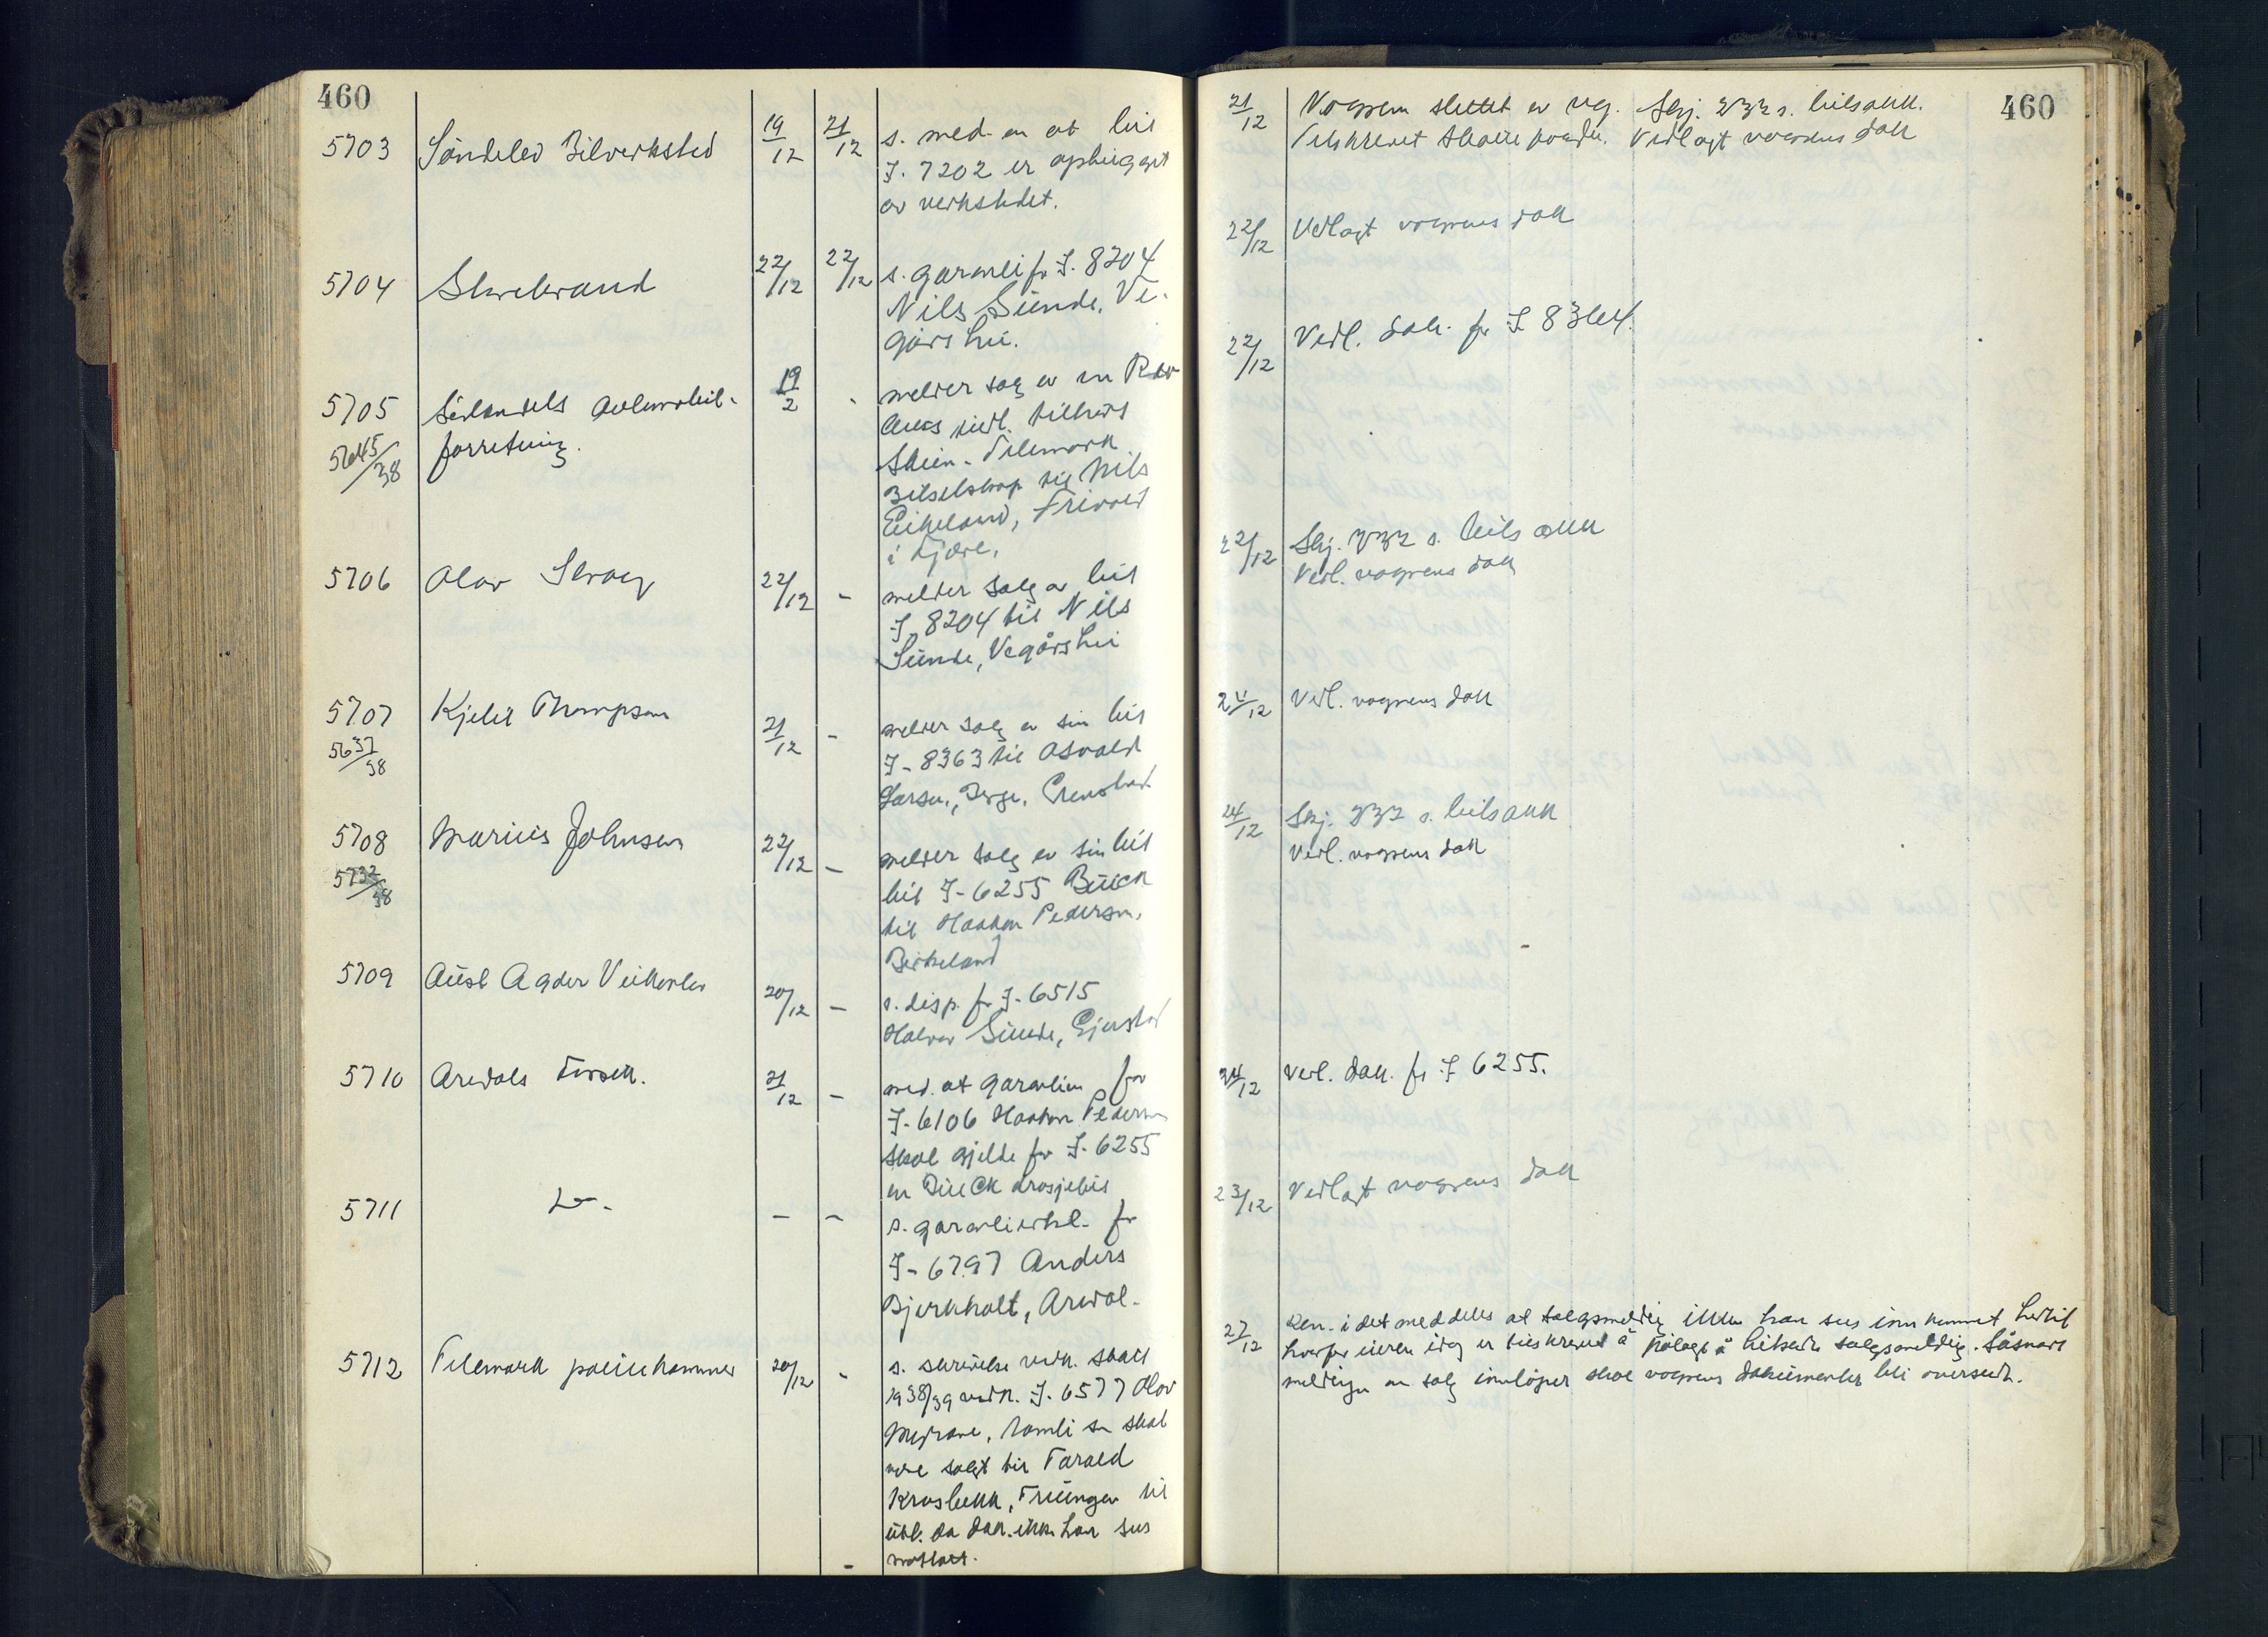 460
5703 Söndeled Bilverksted 19/12 21/12 s. med. om at bil
I. 7202 er ophugget
av verkstedet.
5704 Storebrand 22/12 22/12 s. garanti for I. 8204
Nils Sünde, Ve-
gårshei.
5705 Sörlandets Automobil- 19/2 melder salg av en Reo
5645/38 forretning. tilhørs
Skien-Telemark
Bilselskap til Nils
Eikeland, Frivold
i Fjære.
5706 Olav 22/12 - melder salg av bil
I. 8204 til Nils
Sünde, Vegårshei
5707 Kjeld Thompson 21/12 - melder salg av sin bil
5637/38 I-8363 til Osvald
Larsen, Berge,
5708 Marius Johnsen 22/12 - melder salg av sin bil
5732/38 bil I-6255 Buick
til Haakon Pedersen,
Birkeland
5709 Aust Agder Veikontor 20/12 - s. disp. for I-6515
Halvor Sünde, Gjerstad
5710 Arendals Forsik. 21/12 - med. at garantien for
I-6106 Haakon Pedersen
skal gjelde for I-6255
en Buick drosjebil
5711 Do - - - s. garantierkl. for
I-6797 Anders
Bjorkholt, Arendal.
5712 Telemark politikammer 20/12 - s. skrivelse vedk. skatt
1938/39 vedk. I-6577 Olav
Myrane, Tomli som skal
være solgt til Tarald
Krosbekk, Treungen til
uttl. da dok. ikke har sees
mottatt.
460
21/12 Vognen slettet av reg. Skj. 332 s. bilsakk.
Tilskrevet Vedlagt vognens dok
22/12 Vedlagt vognens dok
22/12 Vedl. dok. for I 8364.
22/12 Skj. 332 s. bilsakk
Vedl. vognens dok
22/12 Vedl. vognens dok
24/12 Skj. 332 s. bilsakk
Vedl. vognens dok
24/12 Vedl. dok. for I 6255.
23/12 Vedlagt vognens dok
27/12 i det meddeles at salgsmelding ikke kan sees innkommet hertil
hvorfor eieren idag er tilskrevet å pålagt å hitsende salgsmelding. Såsnart
meldingen om salg innløper skal vognens dokumenter bli oversendt.